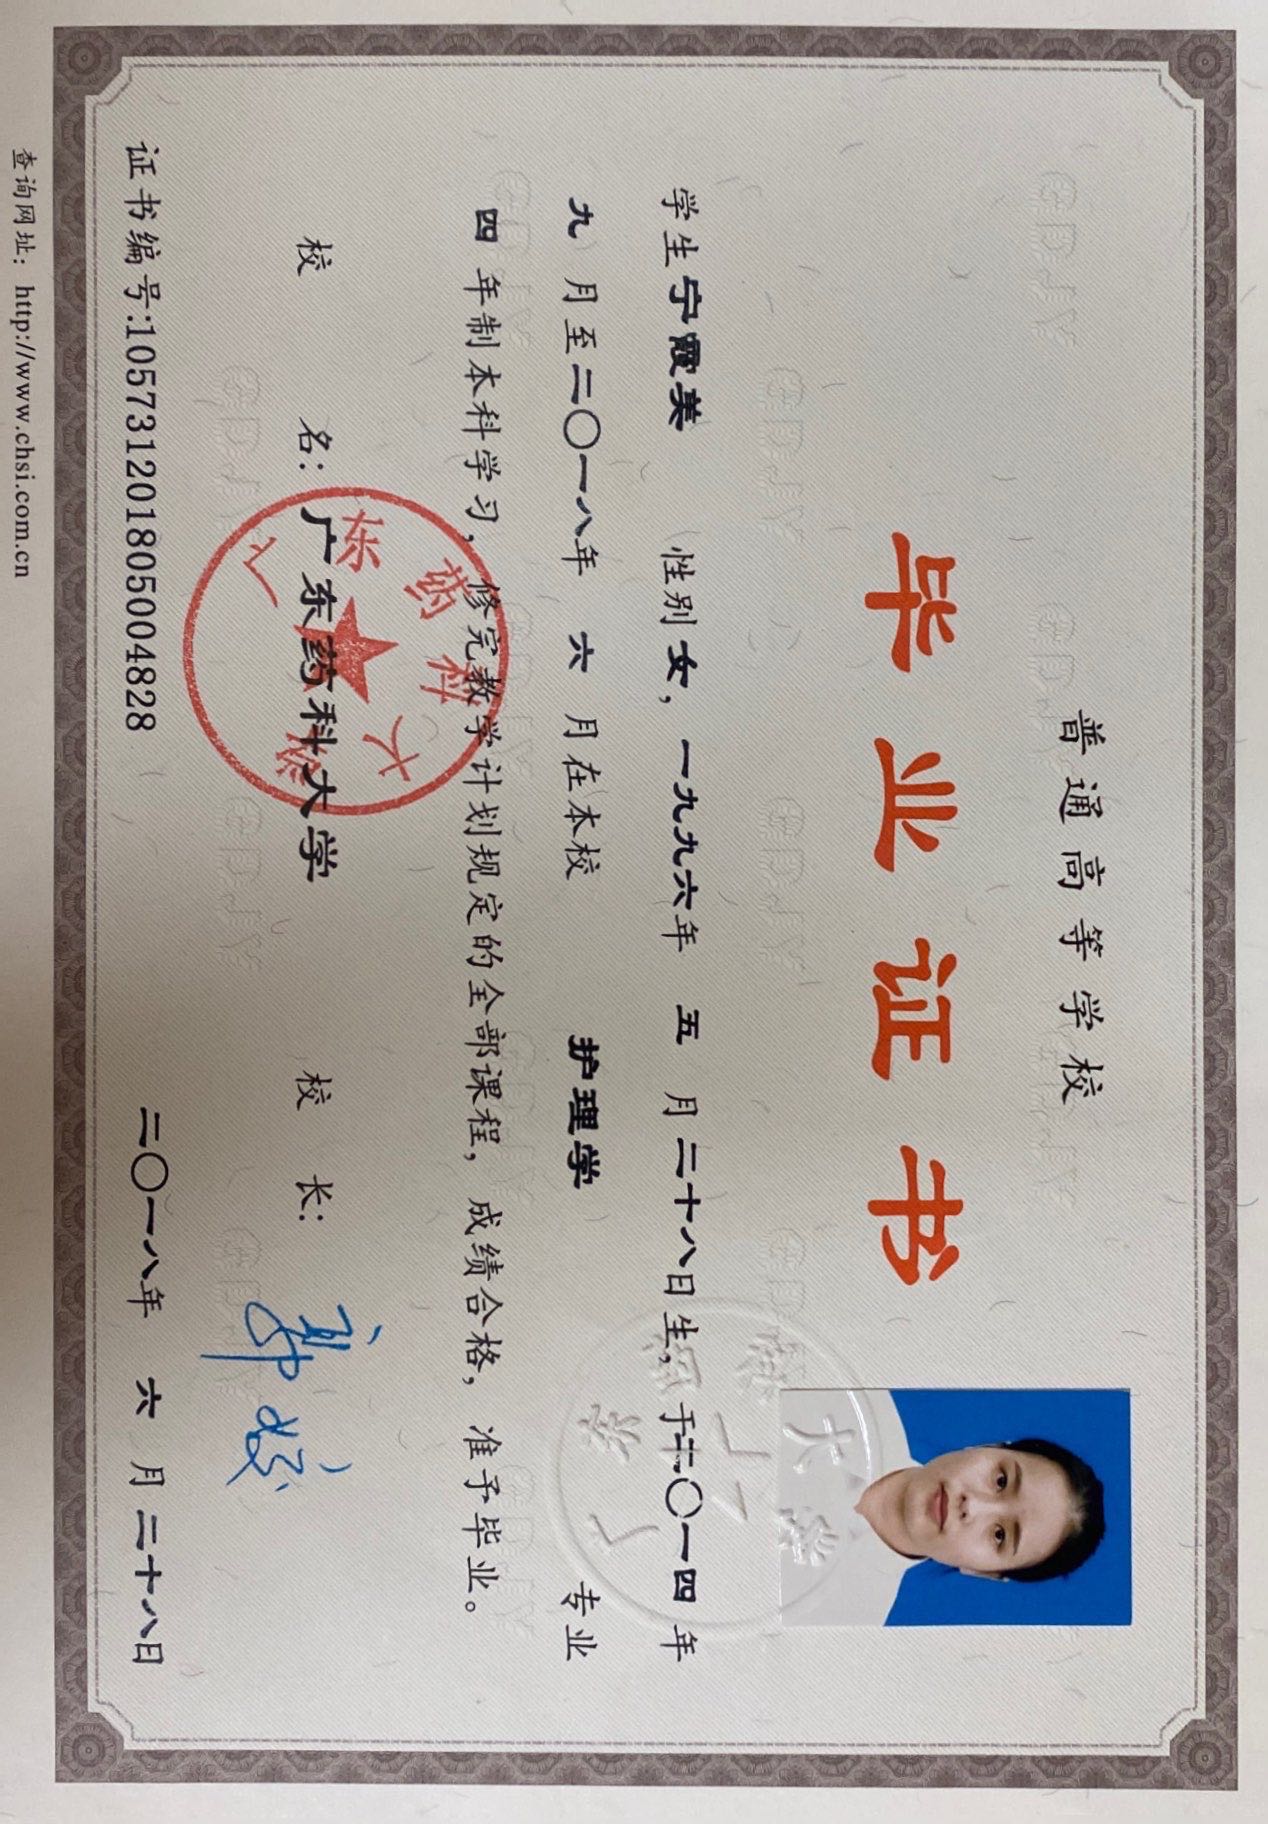 普通高等学校
毕业证书
学生宁霞美 性别女，一九九六年 五 月二十八日生，于二〇一四年
九 月至二〇一八年 六 月在本校 护理学 专业
四 年制本科学习，修完教学计划规定的全部课程，成绩合格，准予毕业。
校 名：广东药科大学 校 长：
广东药科大学
证书编号:105731201805004828 二〇一八年 六 月二十八日
查询网址：http://www.chsi.com.cn